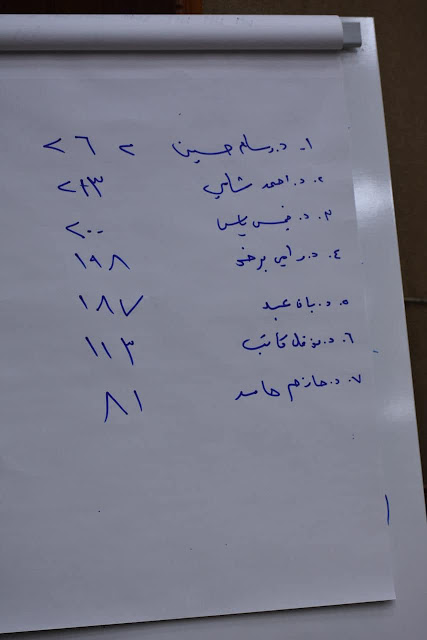 ١. د. وسام حسين ٢٦٢
٢. د. احمد شامي ٢٨٣
٣. د. قيس ياس ٢٠٠
٤. د. رامي ١٩٨
٥. د. بان عبد ١٨٧
٦. د. نوفل كاتب ١١٣
٧. د. حازم حامد ٨١